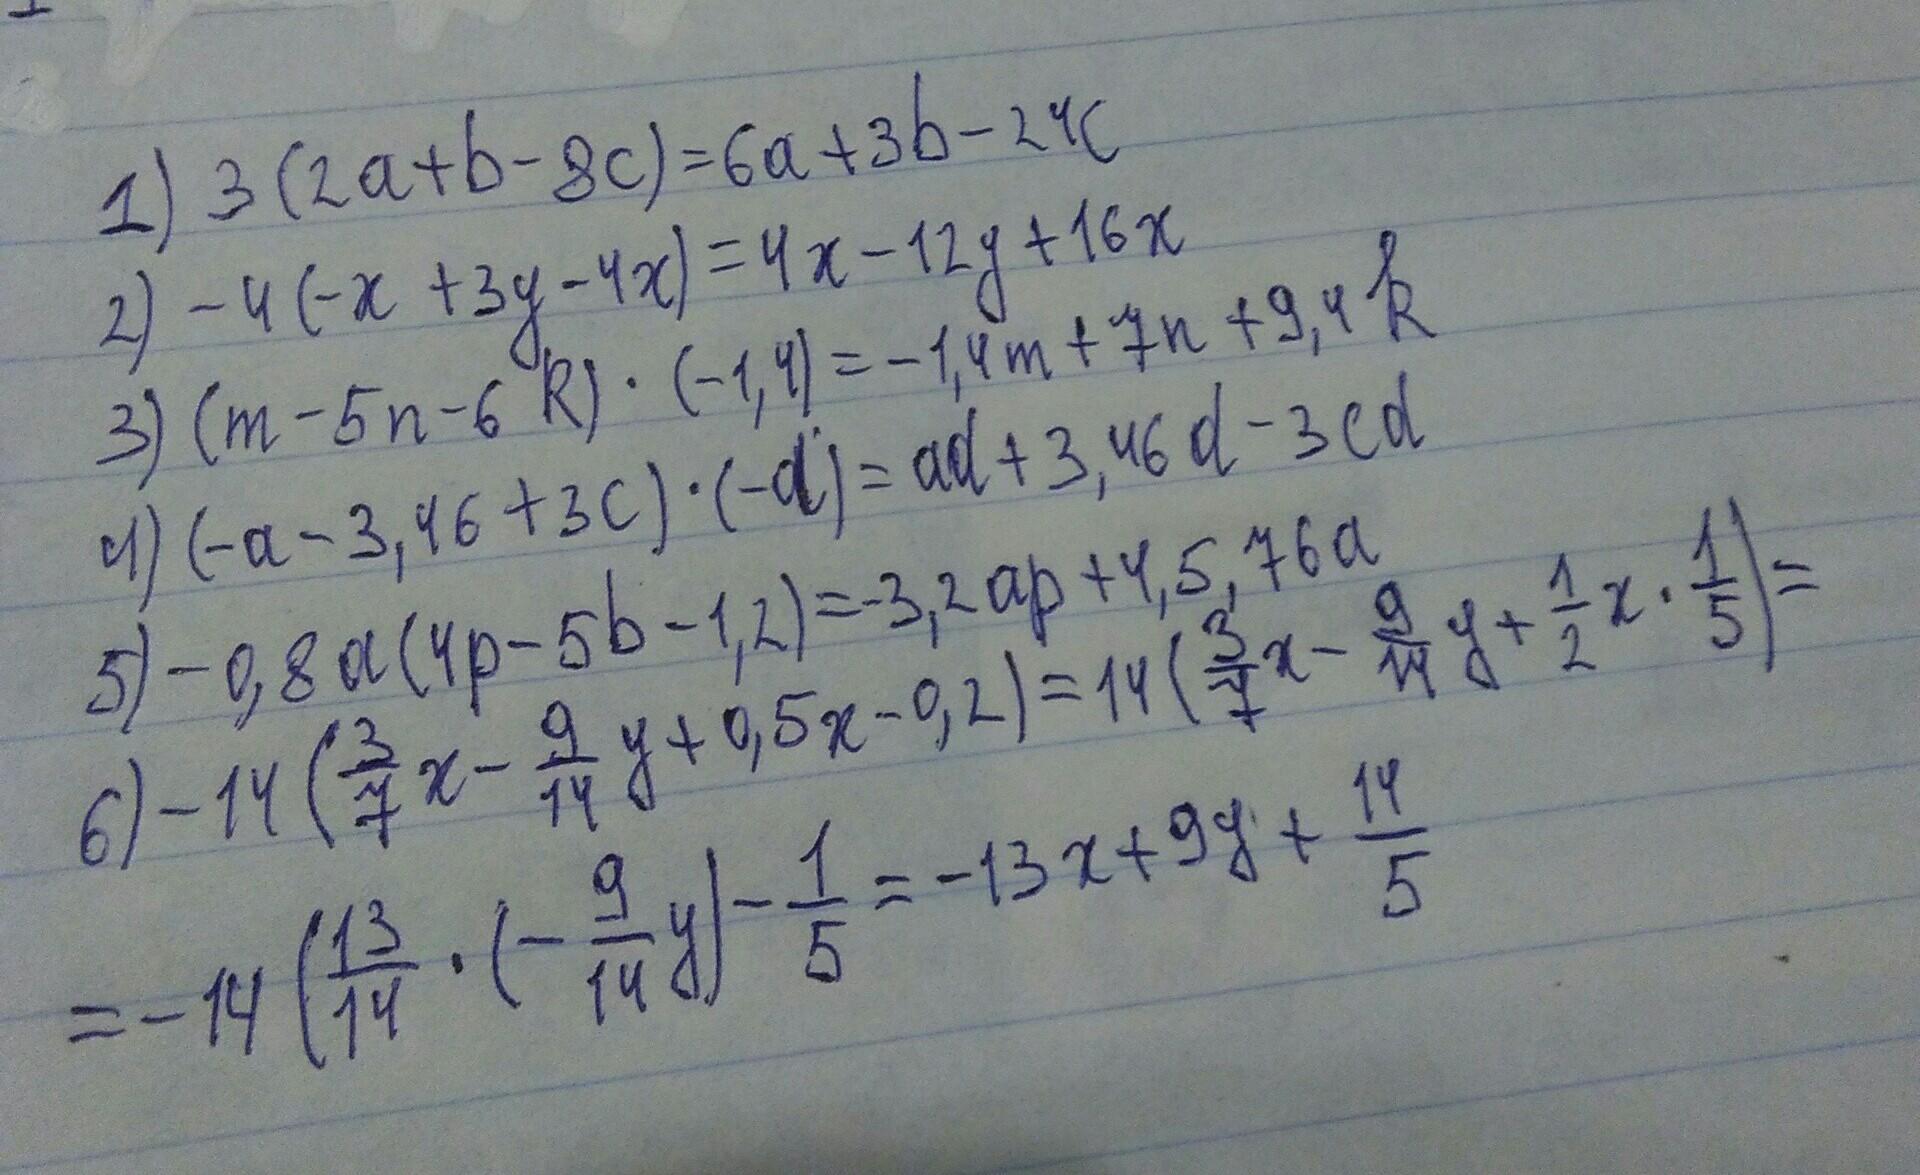 1) 3(2a+b-8c)=6a+3b-24c
2) -4(-x+3y-4x)=4x-12y+16x
3) (m-5n-6k)·(-1,4)=-1,4m+7n+9,4k
4) (-a-3,46+3c)·(-d)=ad+3,46d-3cd
5) -0,8a(4p-5b-1,2)=-3,2ap+4,5,76a
6) -14(3/7x-9/14y+0,5x-0,2)=14(3/7x-9/14y+1/2x·1/5)=
=-14(13/14·(-9/14y)-1/5=-13x+9y+14/5